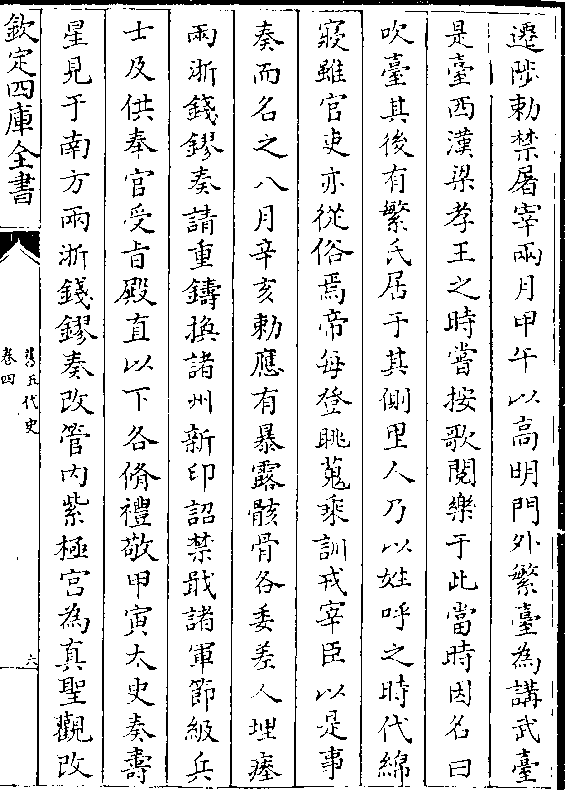 遷陟勅禁屠宰兩月甲午以高明門外繁臺為講武臺
是臺西漢梁孝王之時嘗按歌閱樂于此當時因名曰
吹臺其後有繁氏居于其側里人乃以姓呼之時代綿
寢雖官吏亦從俗焉帝每登眺蒐乘訓戎宰臣以是事
奏而名之八月辛亥勅應有暴露骸骨各委差人埋瘞
兩浙錢鏐奏請重鑄換諸州新印詔禁戢諸軍節級兵
士及供奉官受㫖殿直以下各脩禮敬甲寅太史奏壽
星見于南方兩浙錢鏐奏改管内紫極宮為真聖觀改
欽定四庫全書
舊五代史
卷四
六